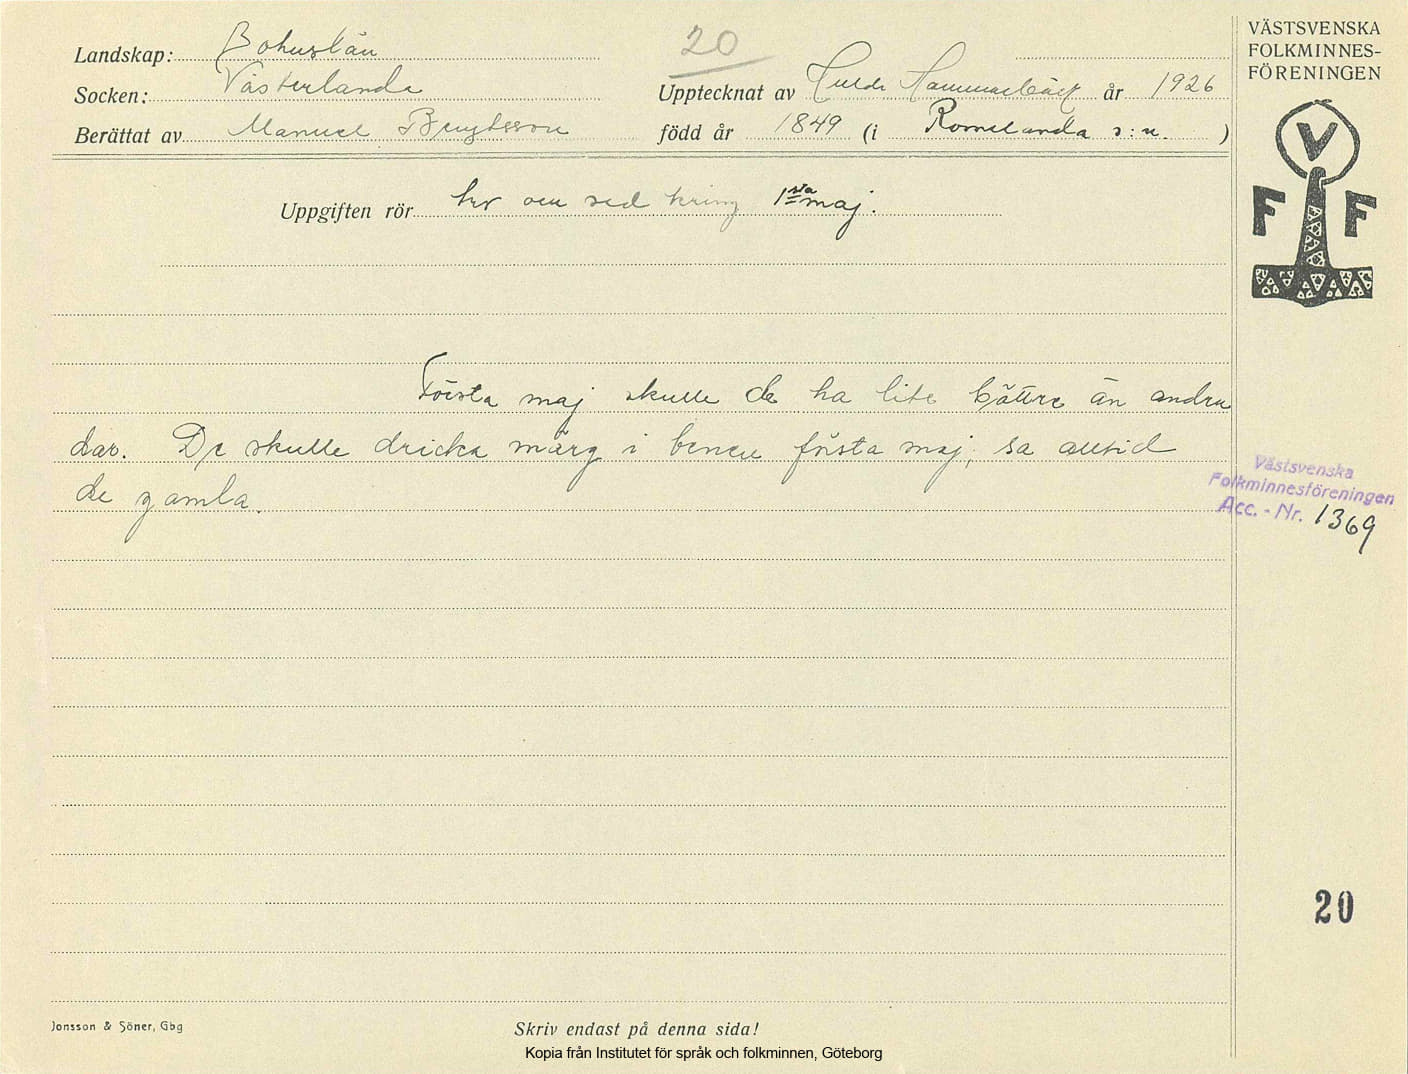 Landskap: Bohuslän
20
VÄSTSVENSKA
FOLKMINNES-
FÖRENINGEN
Socken: Västerlanda
Upptecknat av Hulda Hammarbäck år 1926
Berättat av Manuel Bengtsson
född år 1849 (i Romelanda s:n. )
V
F F
Uppgiften rör tro och sed kring 1sta maj.
Första maj skulle de ha lite bättre än andra
dar. De skulle dricka märg i benen första maj, sa alltid
de gamla.
Västsvenska
Folkminnesföreningen
Acc. - Nr. 1369
20
Jonsson & Söner, Gbg
Skriv endast på denna sida!
Kopia från Institutet för språk och folkminnen, Göteborg